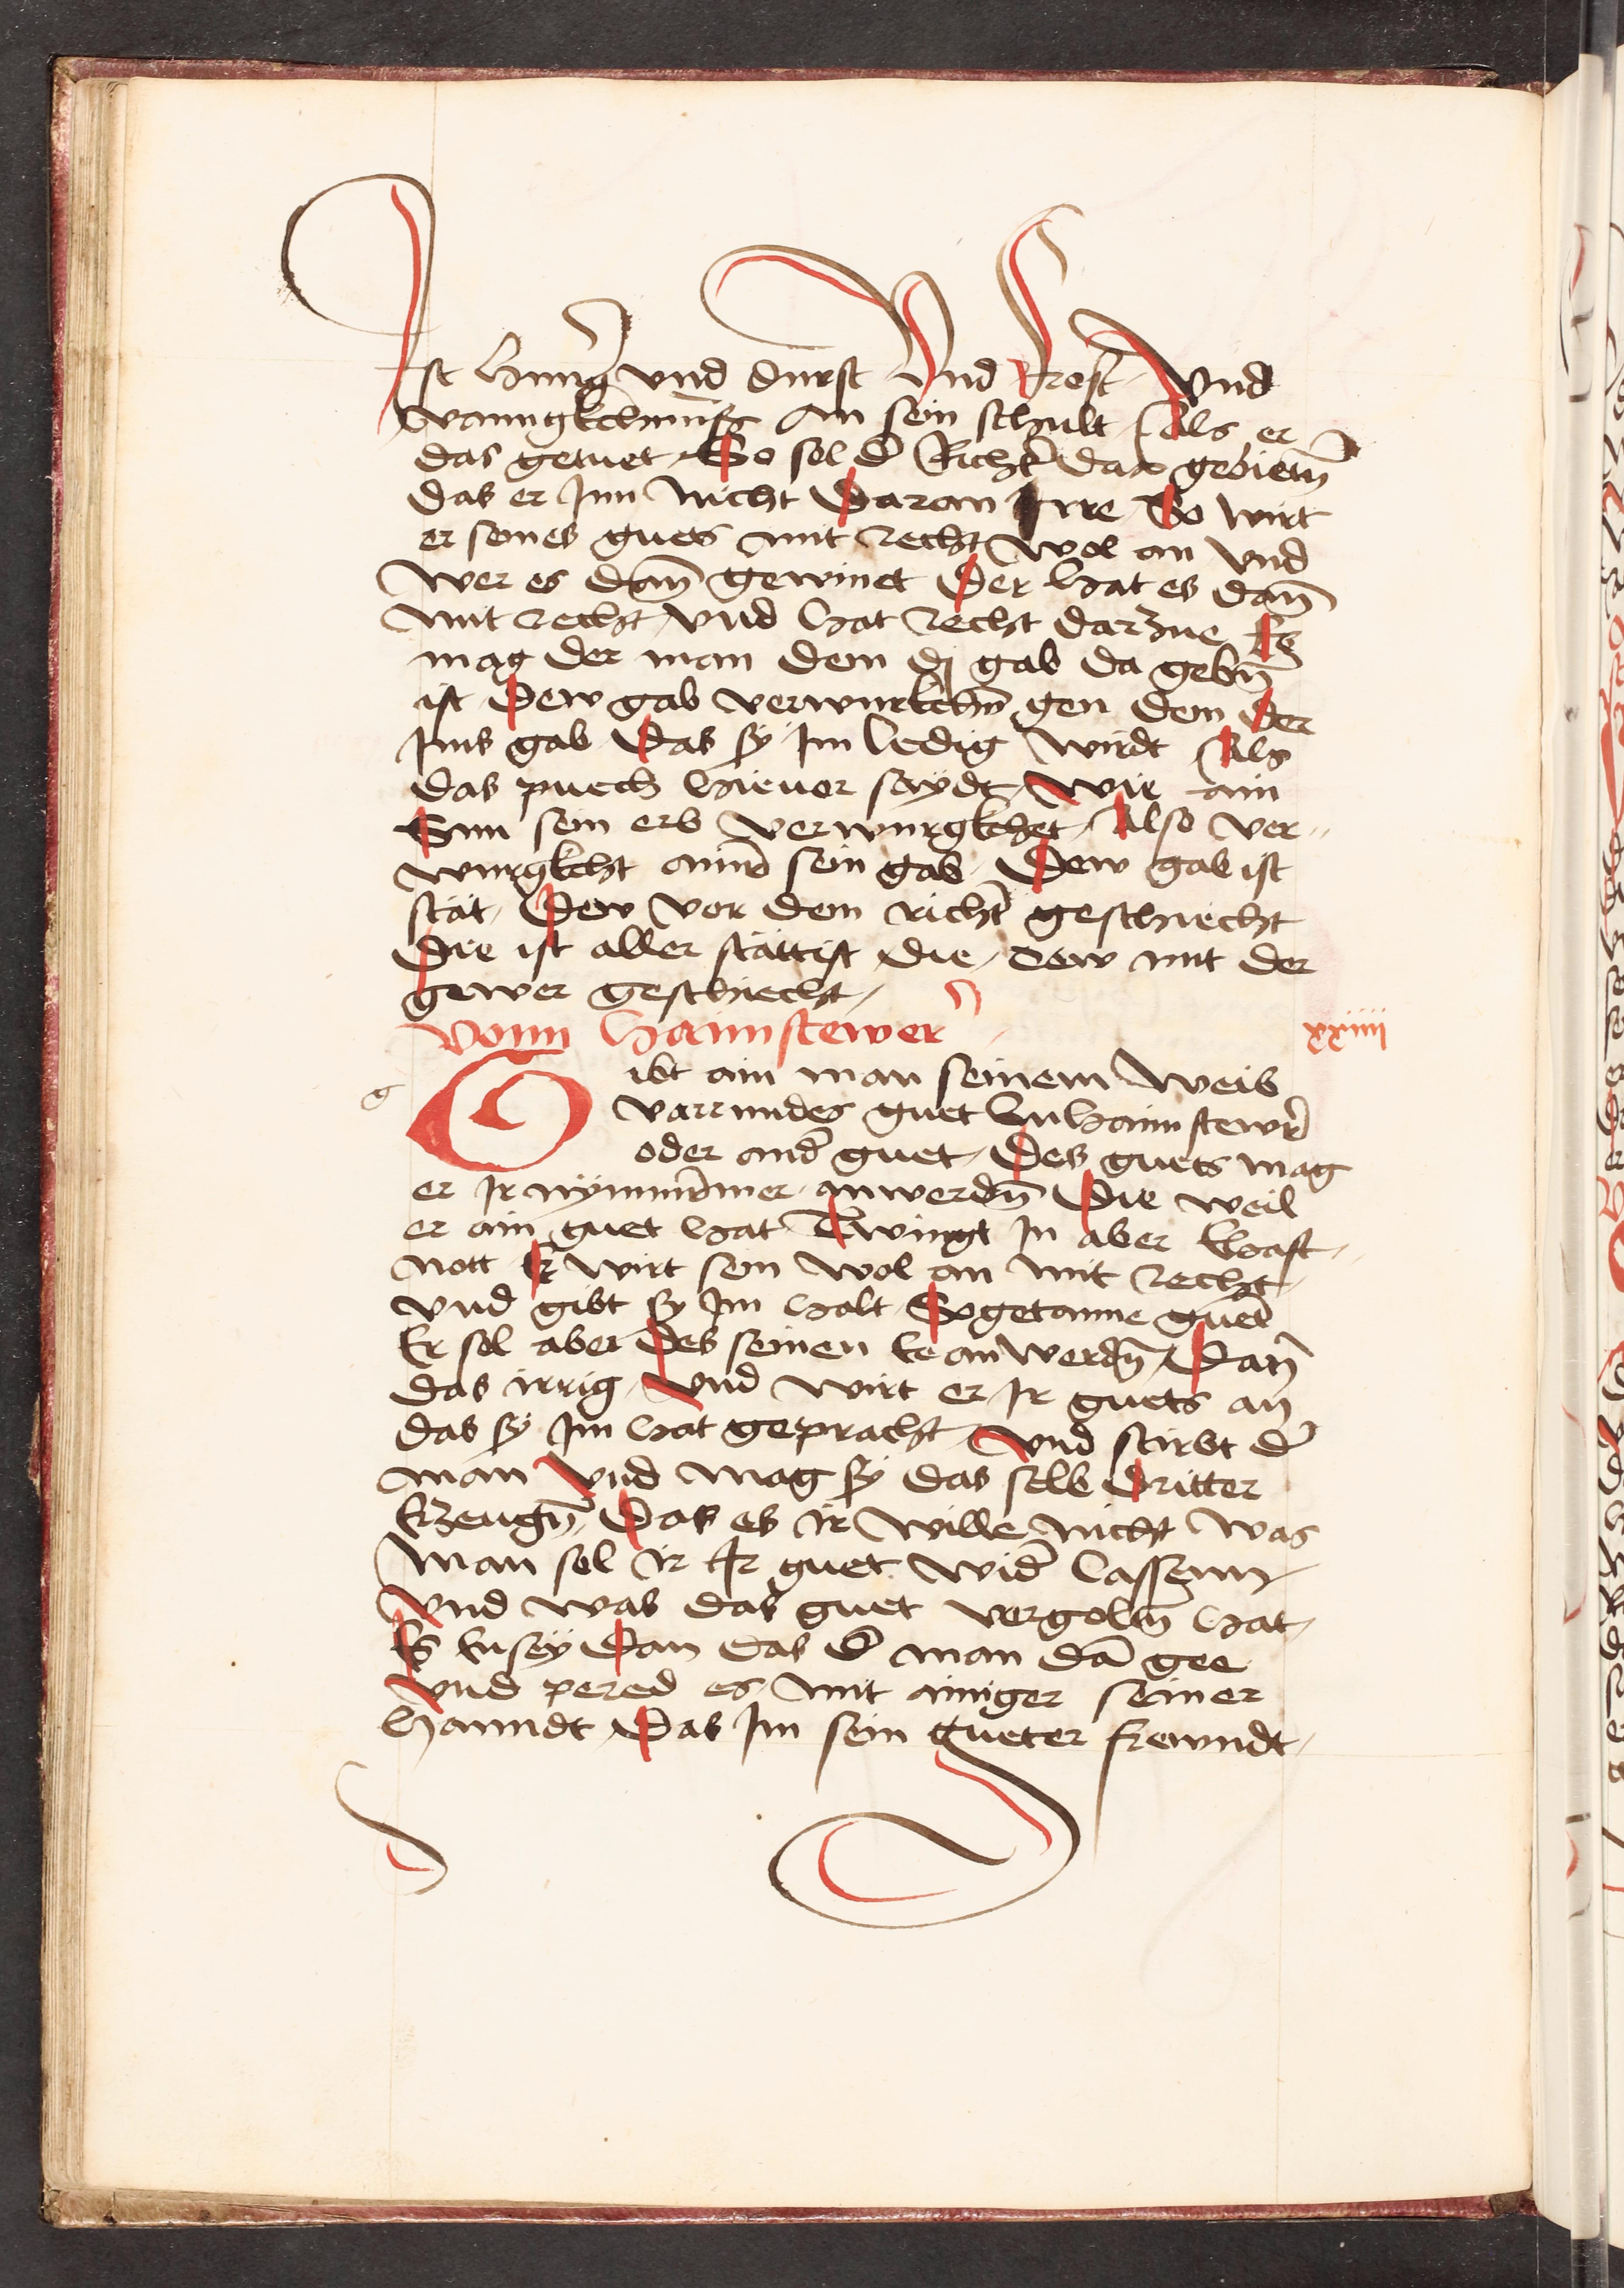 Ist hung̾ vnd durst Vnd Frost Vnd
vanngkchnuß An sein schult Als er
das getuet So sol d̾ Richt̾ dar gebietn̄
das er Inn Nicht Daran Irre So wirt
er seines guets mit recht wol an vnd
wer es dan̄ gewinet Der hat es dan̄
mit recht vnd hat recht darzue Es
mag der man dem dj gab da gebn̄
ist Dew gab verwurkchn̄ gen dem Der
Ims gab Das sy Im ledig wirdt Als
das puech hieuor saydt Wie ain
Sun sein erb verwurgkchet Also ver-
wurgkcht ainr̄ sein gab Dew gab ist
stät Dew vor dem richt̾ geschiecht
Die ist aller stättist die Dew mit der
gewer geschiecht
Vonn haimstewer
xxiiii
g
Gibt ain man seinem Weib
varrundes guet zu haimstewr̄
oder and̾ guet Des guets mag
er Ir nymmermer anwerdn̄ Die weil
er ain guet hat Twingt In aber Ehaft
nott Er wirt sein wol an mit recht
vnd gibt sy Im halt Sogetanne guet
Er sol aber des seinen Ee an werdn̄ Dan̄
das irrig Vnd wirt er Ir guets an
das sy Im hat gepracht Vnd stirbt d̾
man Vnd mag sy das selb Dritter
Erzeugn̄ Das es ir wille nicht was
Man sol ir Ir guet wid̾ lassenn
Vnd was das guet vergoltn̄ hat
Es Ensey Dan das d̾ man dā gee
Vnd pered es mit ainiger seiner
hanndt Das Im sein gueter frewndt